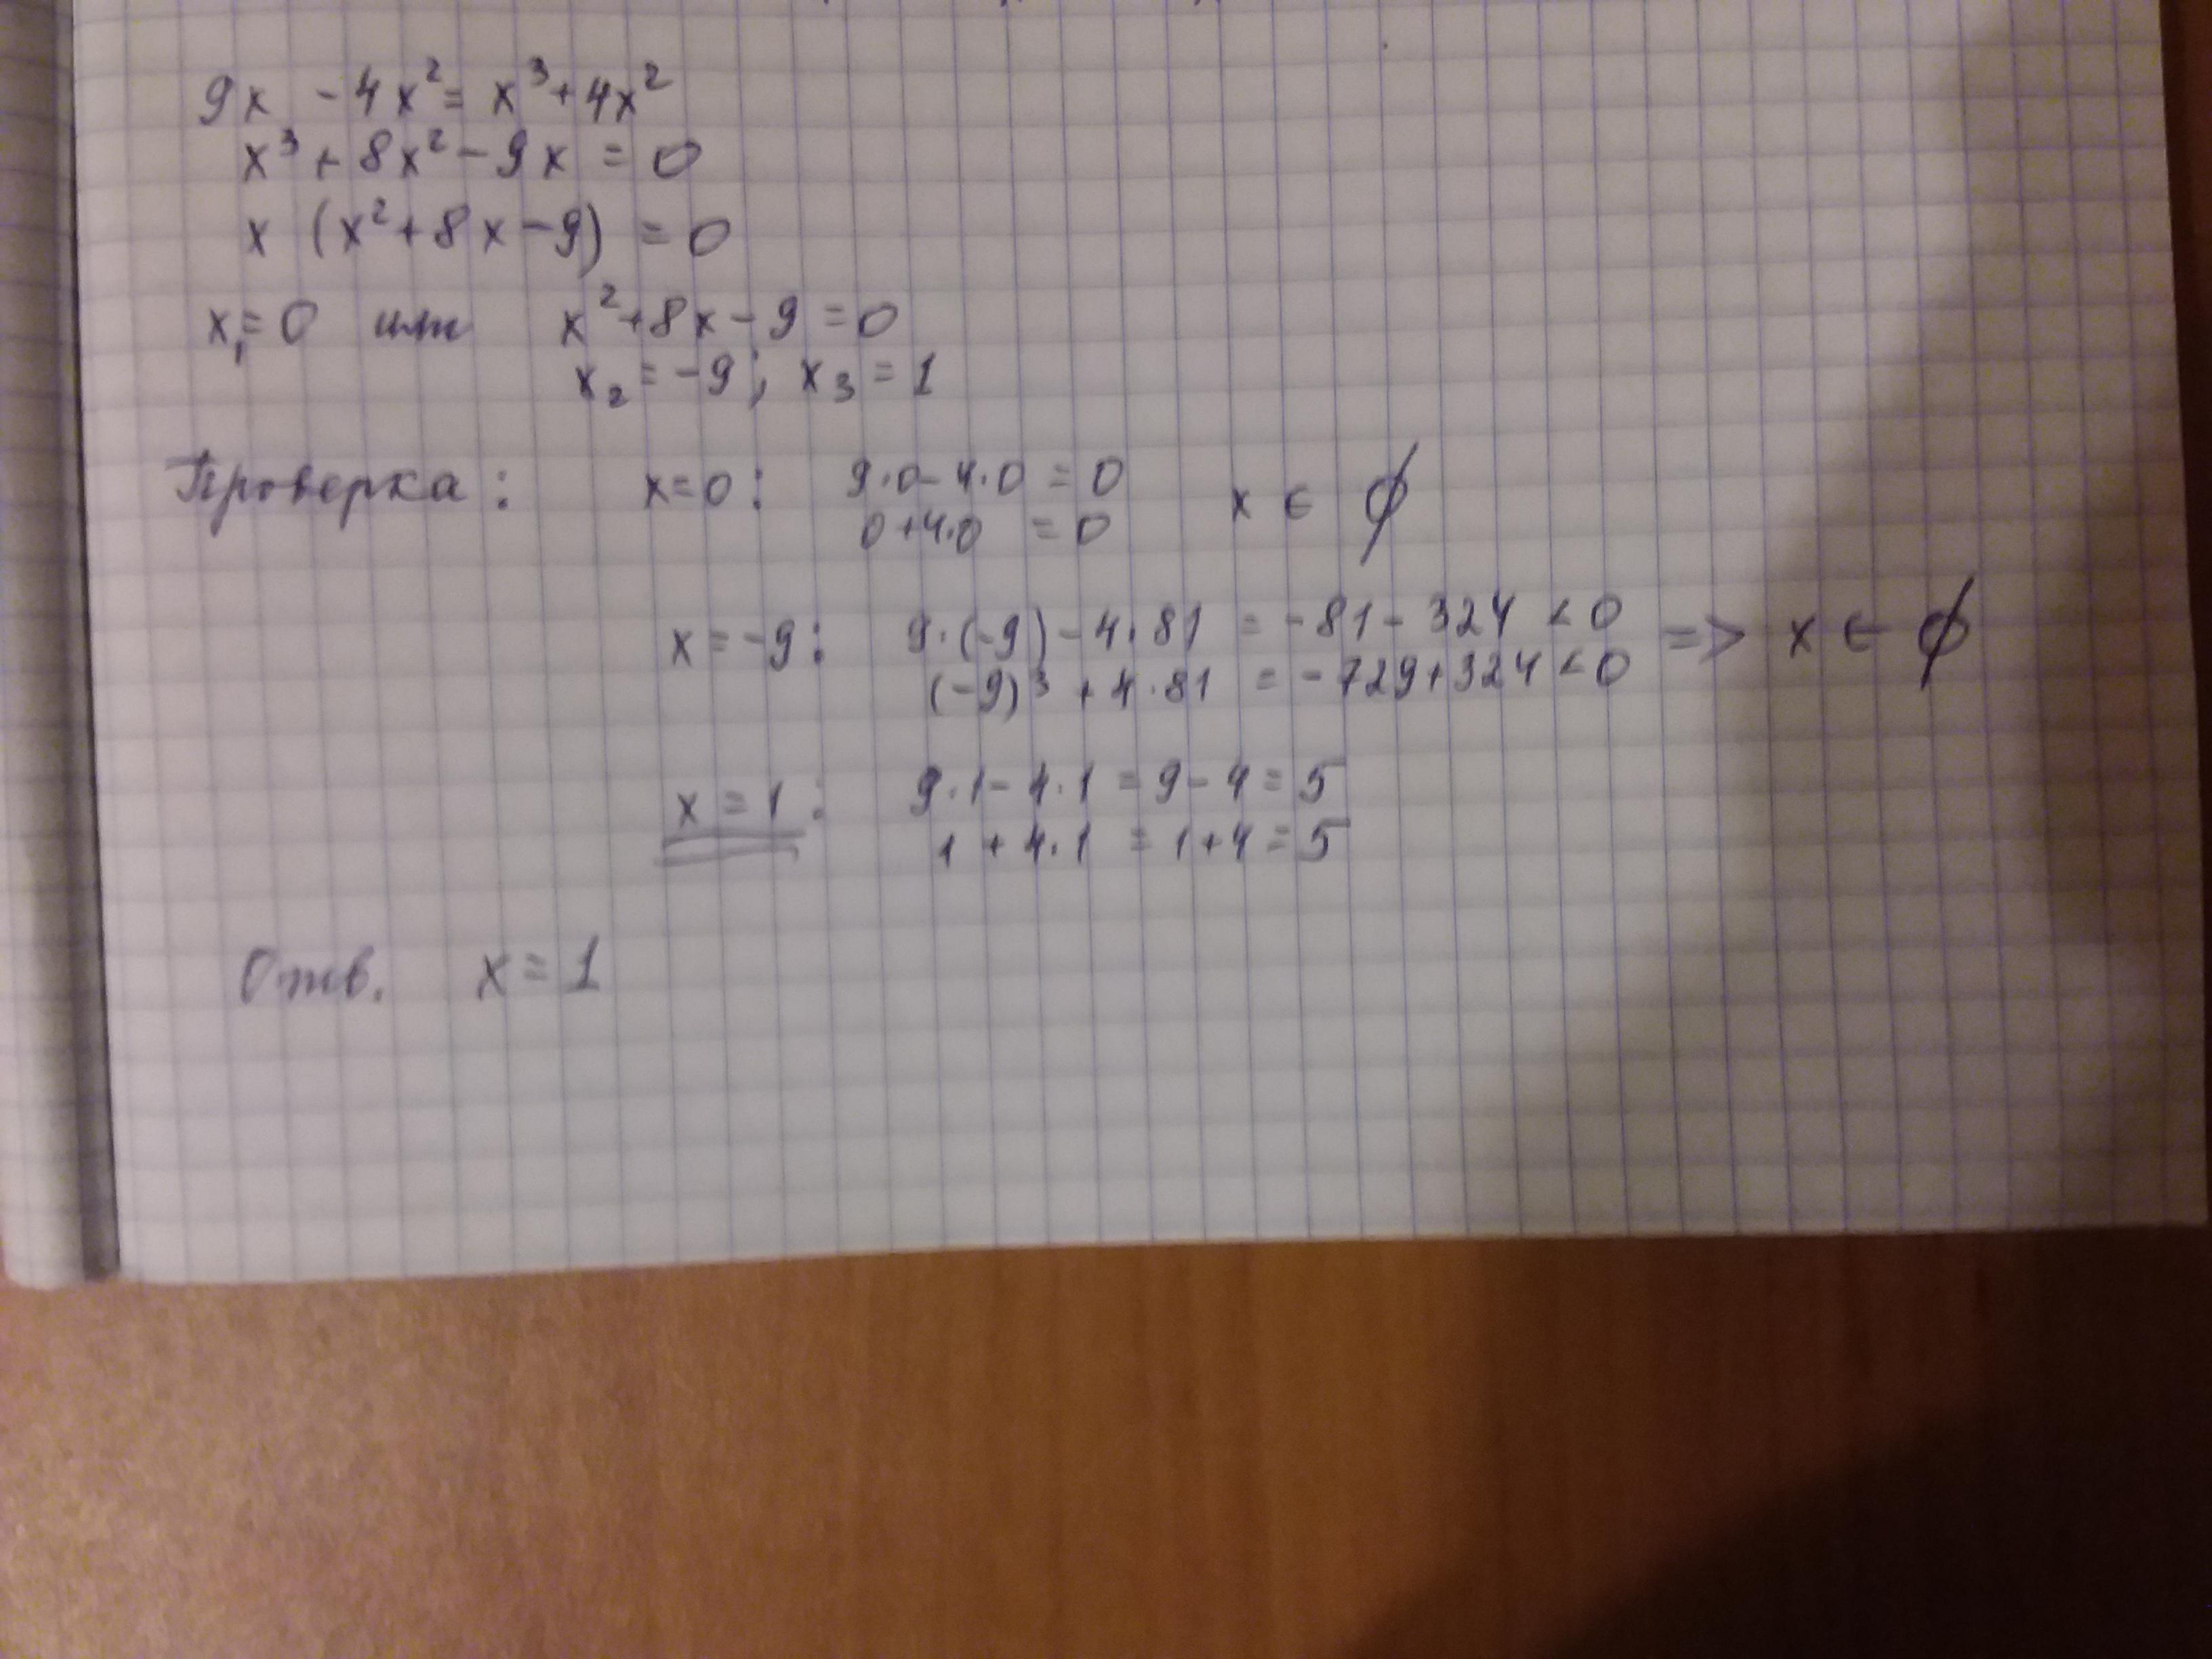 9x - 4x² = x³ + 4x²
x³ + 8x² - 9x = 0
x (x² + 8x - 9) = 0
x₁ = 0 или x² + 8x - 9 = 0
x₂ = -9; x₃ = 1
Проверка: x = 0: 9·0 - 4·0 = 0 x ∈ ∅
0 + 4·0 = 0
x = -9: 9·(-9) - 4·81 = -81 - 324 < 0 => x ∈ ∅
(-9)³ + 4·81 = -729 + 324 < 0
x = 1: 9·1 - 4·1 = 9 - 4 = 5
1 + 4·1 = 1 + 4 = 5
Отв. x = 1